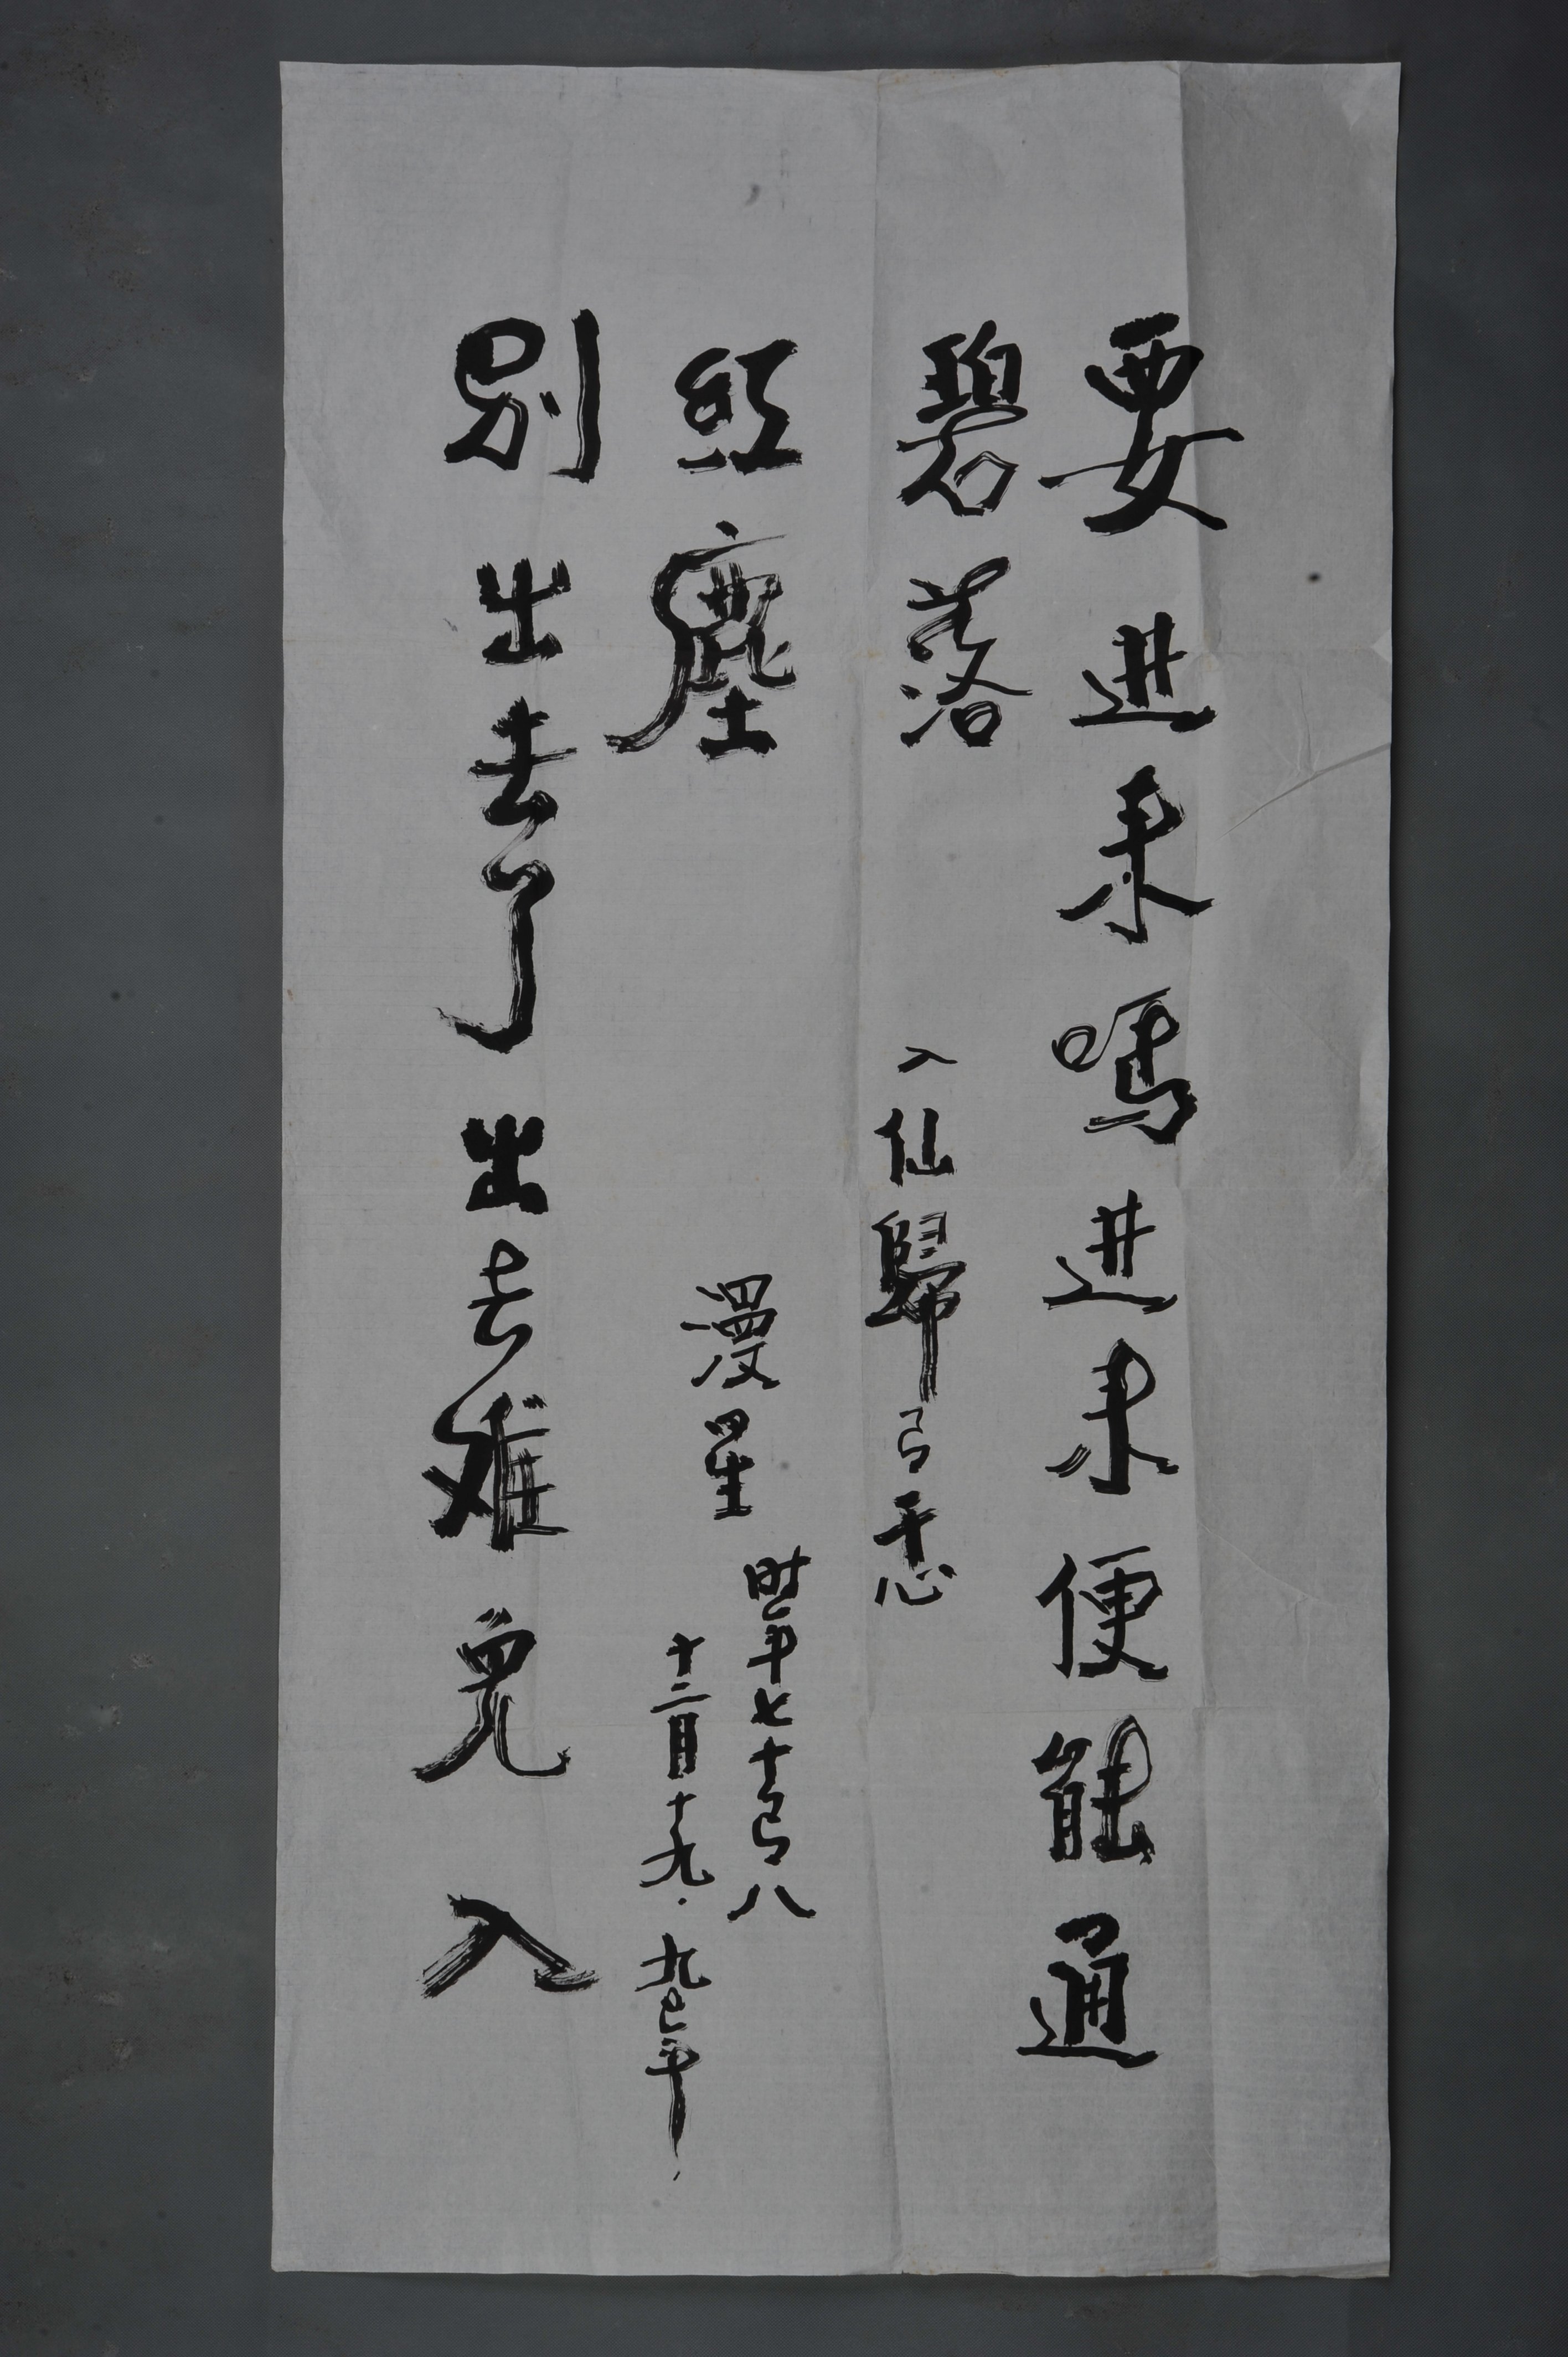 要进来吗进来便能通
碧落
入仙歸
红塵
漫星
时年七十八
十二月十九.九年
别出去了出去难免入